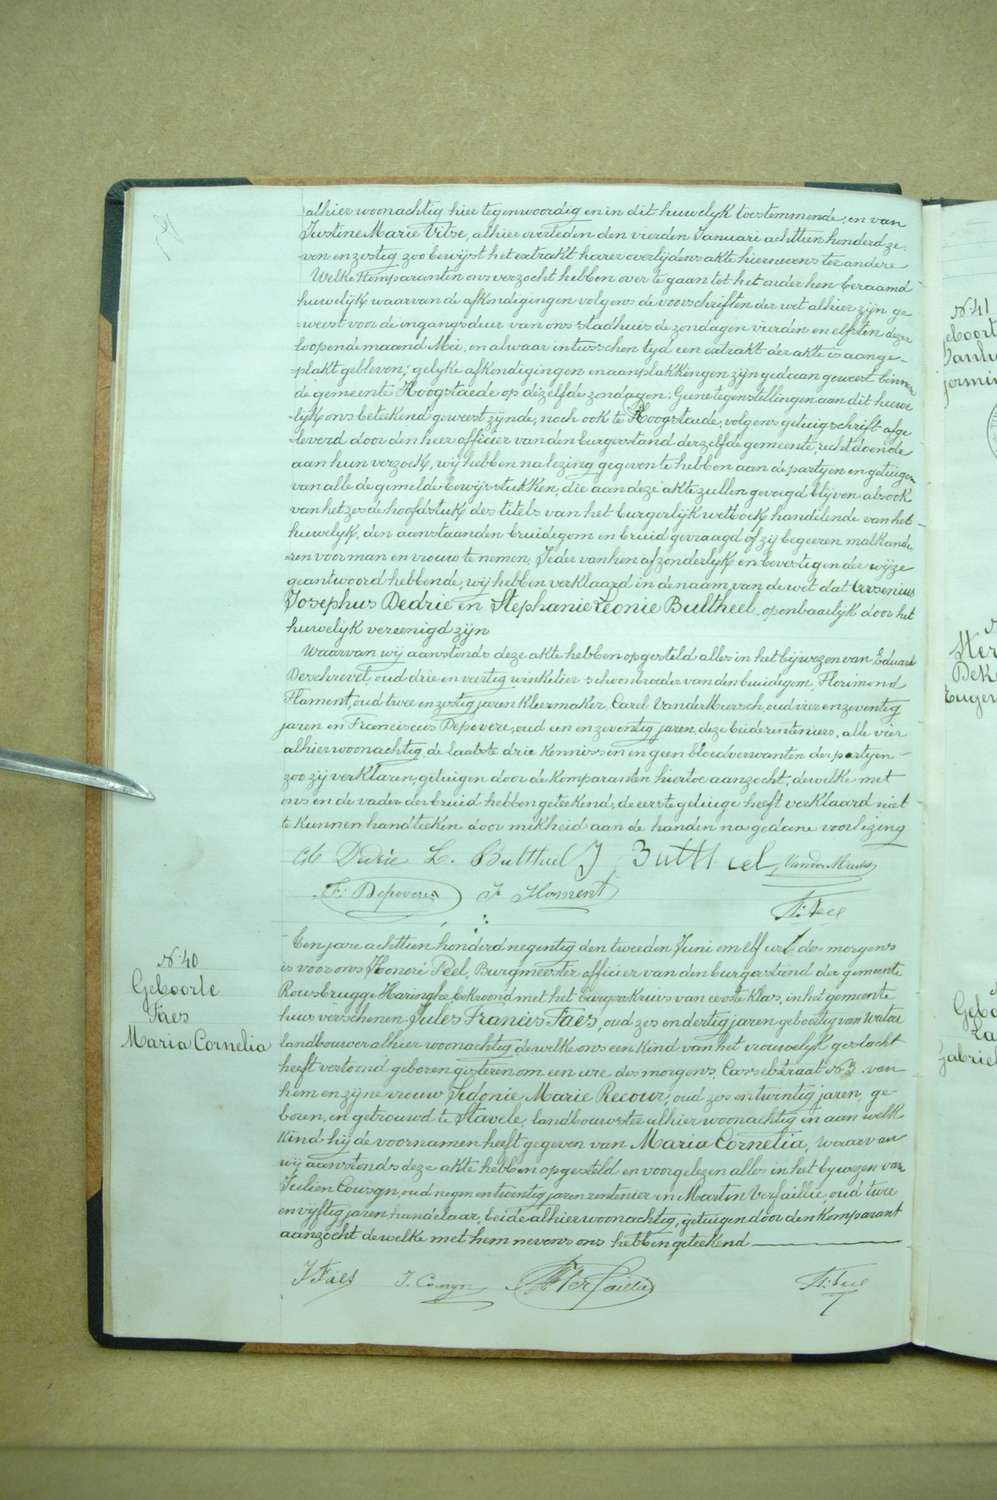 alhier woonachtig hier tegenwoordig en in dit huwelyk toestemmende, en van
Justine Marie Vitse, alhier overleden den vierden Januari achttien honderd ze-
ven en zestig zoo bewijst het extrakt harer overlijdens akte hiernevens ter andere
Welke Komparanten ons verzocht hebben over te gaan tot het onder hen beraamd
huwelijk waarvan de afkondigingen volgens de voorschriften der wet alhier zijn ge-
weest voor de ingangsdeur van ons stadhuis de zondagen vierden en elfsten dezer
loopende maand Mei, en alwaar intusschen tyd een extrakt der akte is aange-
plakt gebleven; gelyke afkondigingen en aanplakkingen zijn gedaan geweest binnen
de gemeente Hoogstaede op dezelfde zondagen; Geene tegenstellingen aan dit huwe-
lijk ons beteekend geweest zijnde, noch ook te Hoogstaede, volgens getuigschrift afge-
leverd door den heer officier van den burgerstand derzelfde gemeente, recht doende
aan hun verzoek, wij hebben na lezing gegeven te hebben aan de partyen en getuigen
van alle de gemelde bewijsstukken, die aan deze akte zullen gevoegd blijven alsook
van het zesde hoofdstuk des titels van het burgerlijk wetboek handelende van het
huwelyk, den aanstaanden bruidegom en bruid gevraagd of zij begeeren malkande-
ren voor man en vrouw te nemen, Ieder van hen afzonderlyk en bevestigender wijze
geantwoord hebbende, wij hebben verklaard in de naam van de wet dat Arsenius
Josephus Dedrie en Stephanie Leonie Bultheel, openbaarlyk door het
huwelyk vereenigd zijn
Waarvan wij aanstonds deze akte hebben opgesteld alles in het bijwezen van Eduard
Deschrevel, oud drie en veertig winkelier schoonbroeder van den bruidegom, Florimond
Flament, oud twee en zestig jaren Kleermaker, Carel Vandermersch, oud vier en zeventig
jaren en Franciscus Depovere, oud een en zeventig jaren, deze beide renteniers, alle vier
alhier woonachtig de laatste drie kennissen en geen bloedverwanten der partyen
zoo zij verklaren, getuigen door de Komparanten hiertoe aanzocht, dewelke met
ons en de vader der bruid hebben geteekend, de eerste getuige heeft verklaard niet
te kunnen handteeken door mikheid aan de handen na gedane voorlezing
Dedrie L. Bultheel J Bultheel Vander Mersch
F: Depovere F Flament
H: Peel
N: 40
Geboorte
Faes
Maria Cornelia
Een jare achttien honderd negentig den tweeden Juni om elf ure des morgens
is voor ons Honoré Peel, Burgmeester officier van den burgerstand der gemeente
Rousbrugge Haringhe bekroond met het burgerkruis van eerste klas, in het gemeente
huis verschenen Jules Francies Faes, oud zes en dertig jaren geboortig van Watou
landbouwer alhier woonachtig dewelke ons een kind van het vrouwelyk geslacht
heeft vertoond geboren gisteren om een ure des morgens, Casselstraat N: 3 van
hem en zijne vrouw Sidonie Marie Recour, oud zes en twintig jaren, ge-
boren, en getrouwd te Stavele, landbouwster alhier woonachtig in aan welk
kind hij de voornamen heeft gegeven van Maria Cornelia, Waarvan
wij aanstonds deze akte hebben opgesteld en voorgelezen alles in het bywezen van
Julien Comyn, oud negen en twintig jaren rentenier en Martin Verfaillie, oud twee
en vyftig jaren, handelaar, beide alhier woonachtig, getuigen door den Komparant
aanzocht dewelke met hem nevens ons hebben geteekend
J Faes J. Comyn M Verfaillie H: Peel
N: 41